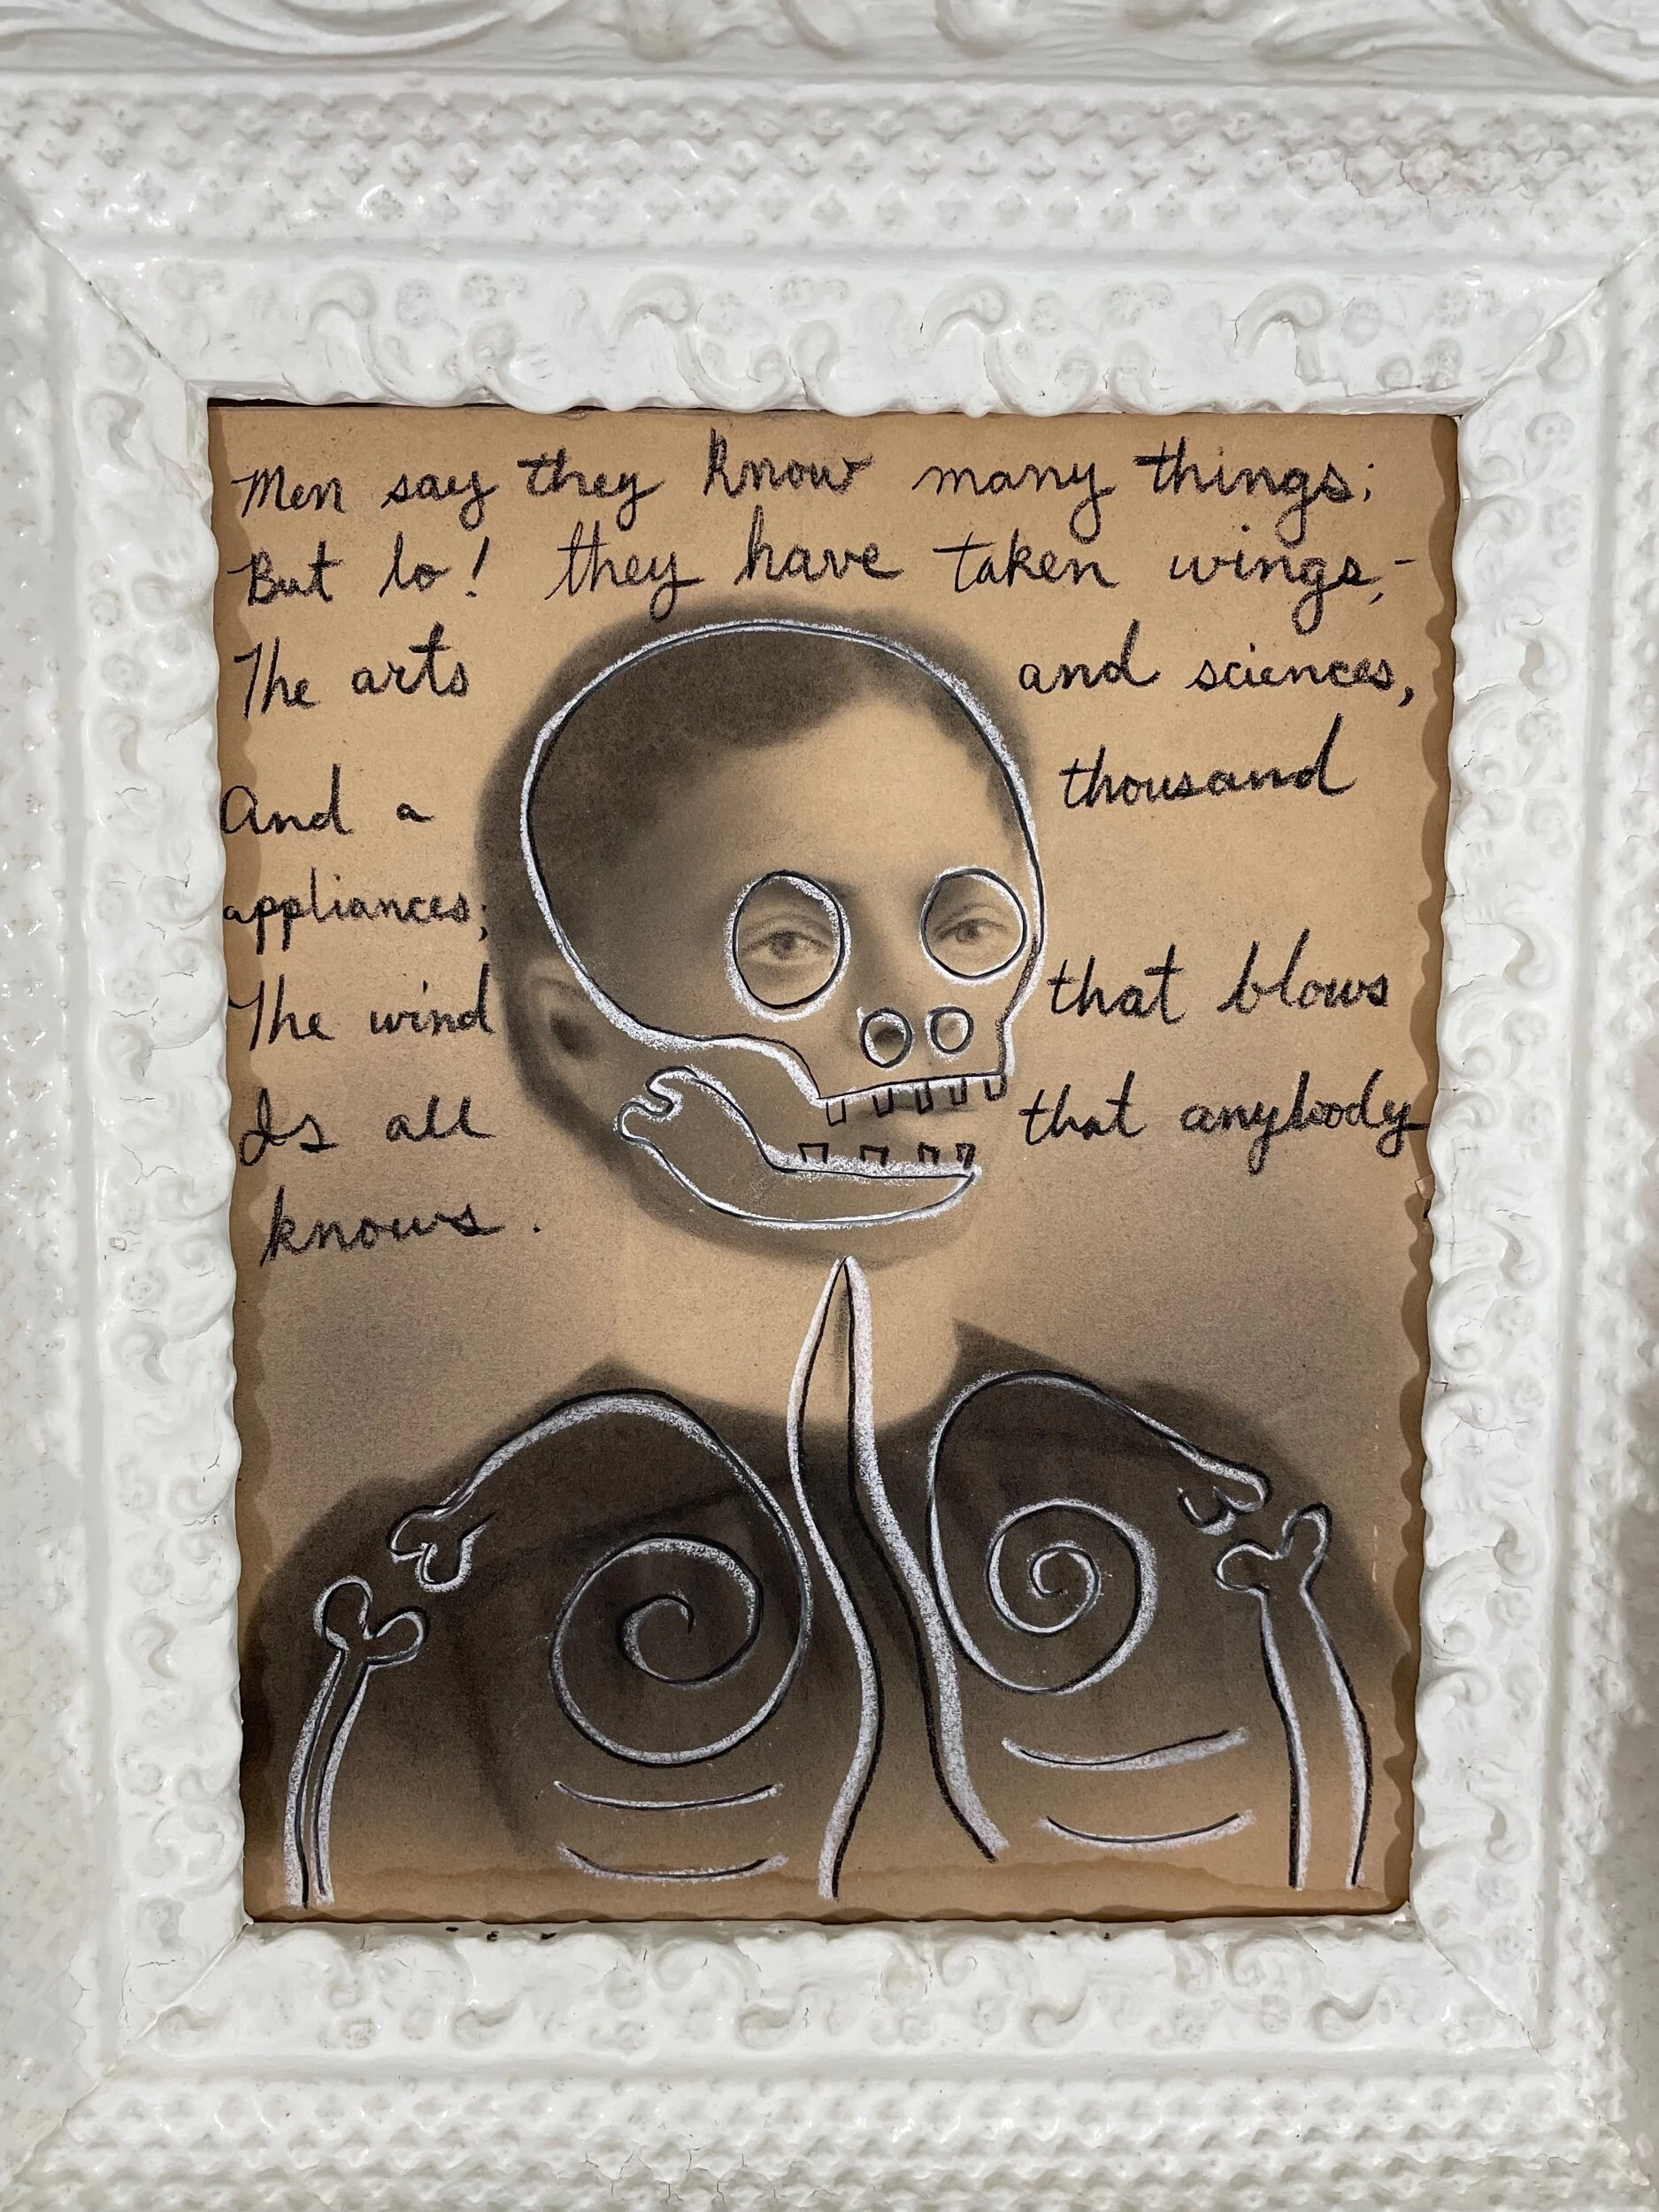 Men say they know many things;
But lo! they have taken wings,-
The arts and sciences,
And a thousand
appliances;
The wind that blows
Is all that anybody
knows.